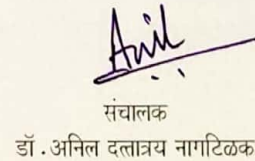 Anil
संचालक
डॉ . अनिल दत्तात्रय नागटिळक